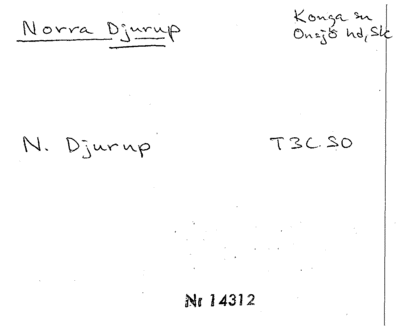 Norra Djurup
Konga sn
Onsjö hd, Sk
N. Djurup
T3C.SO
Nr 14312